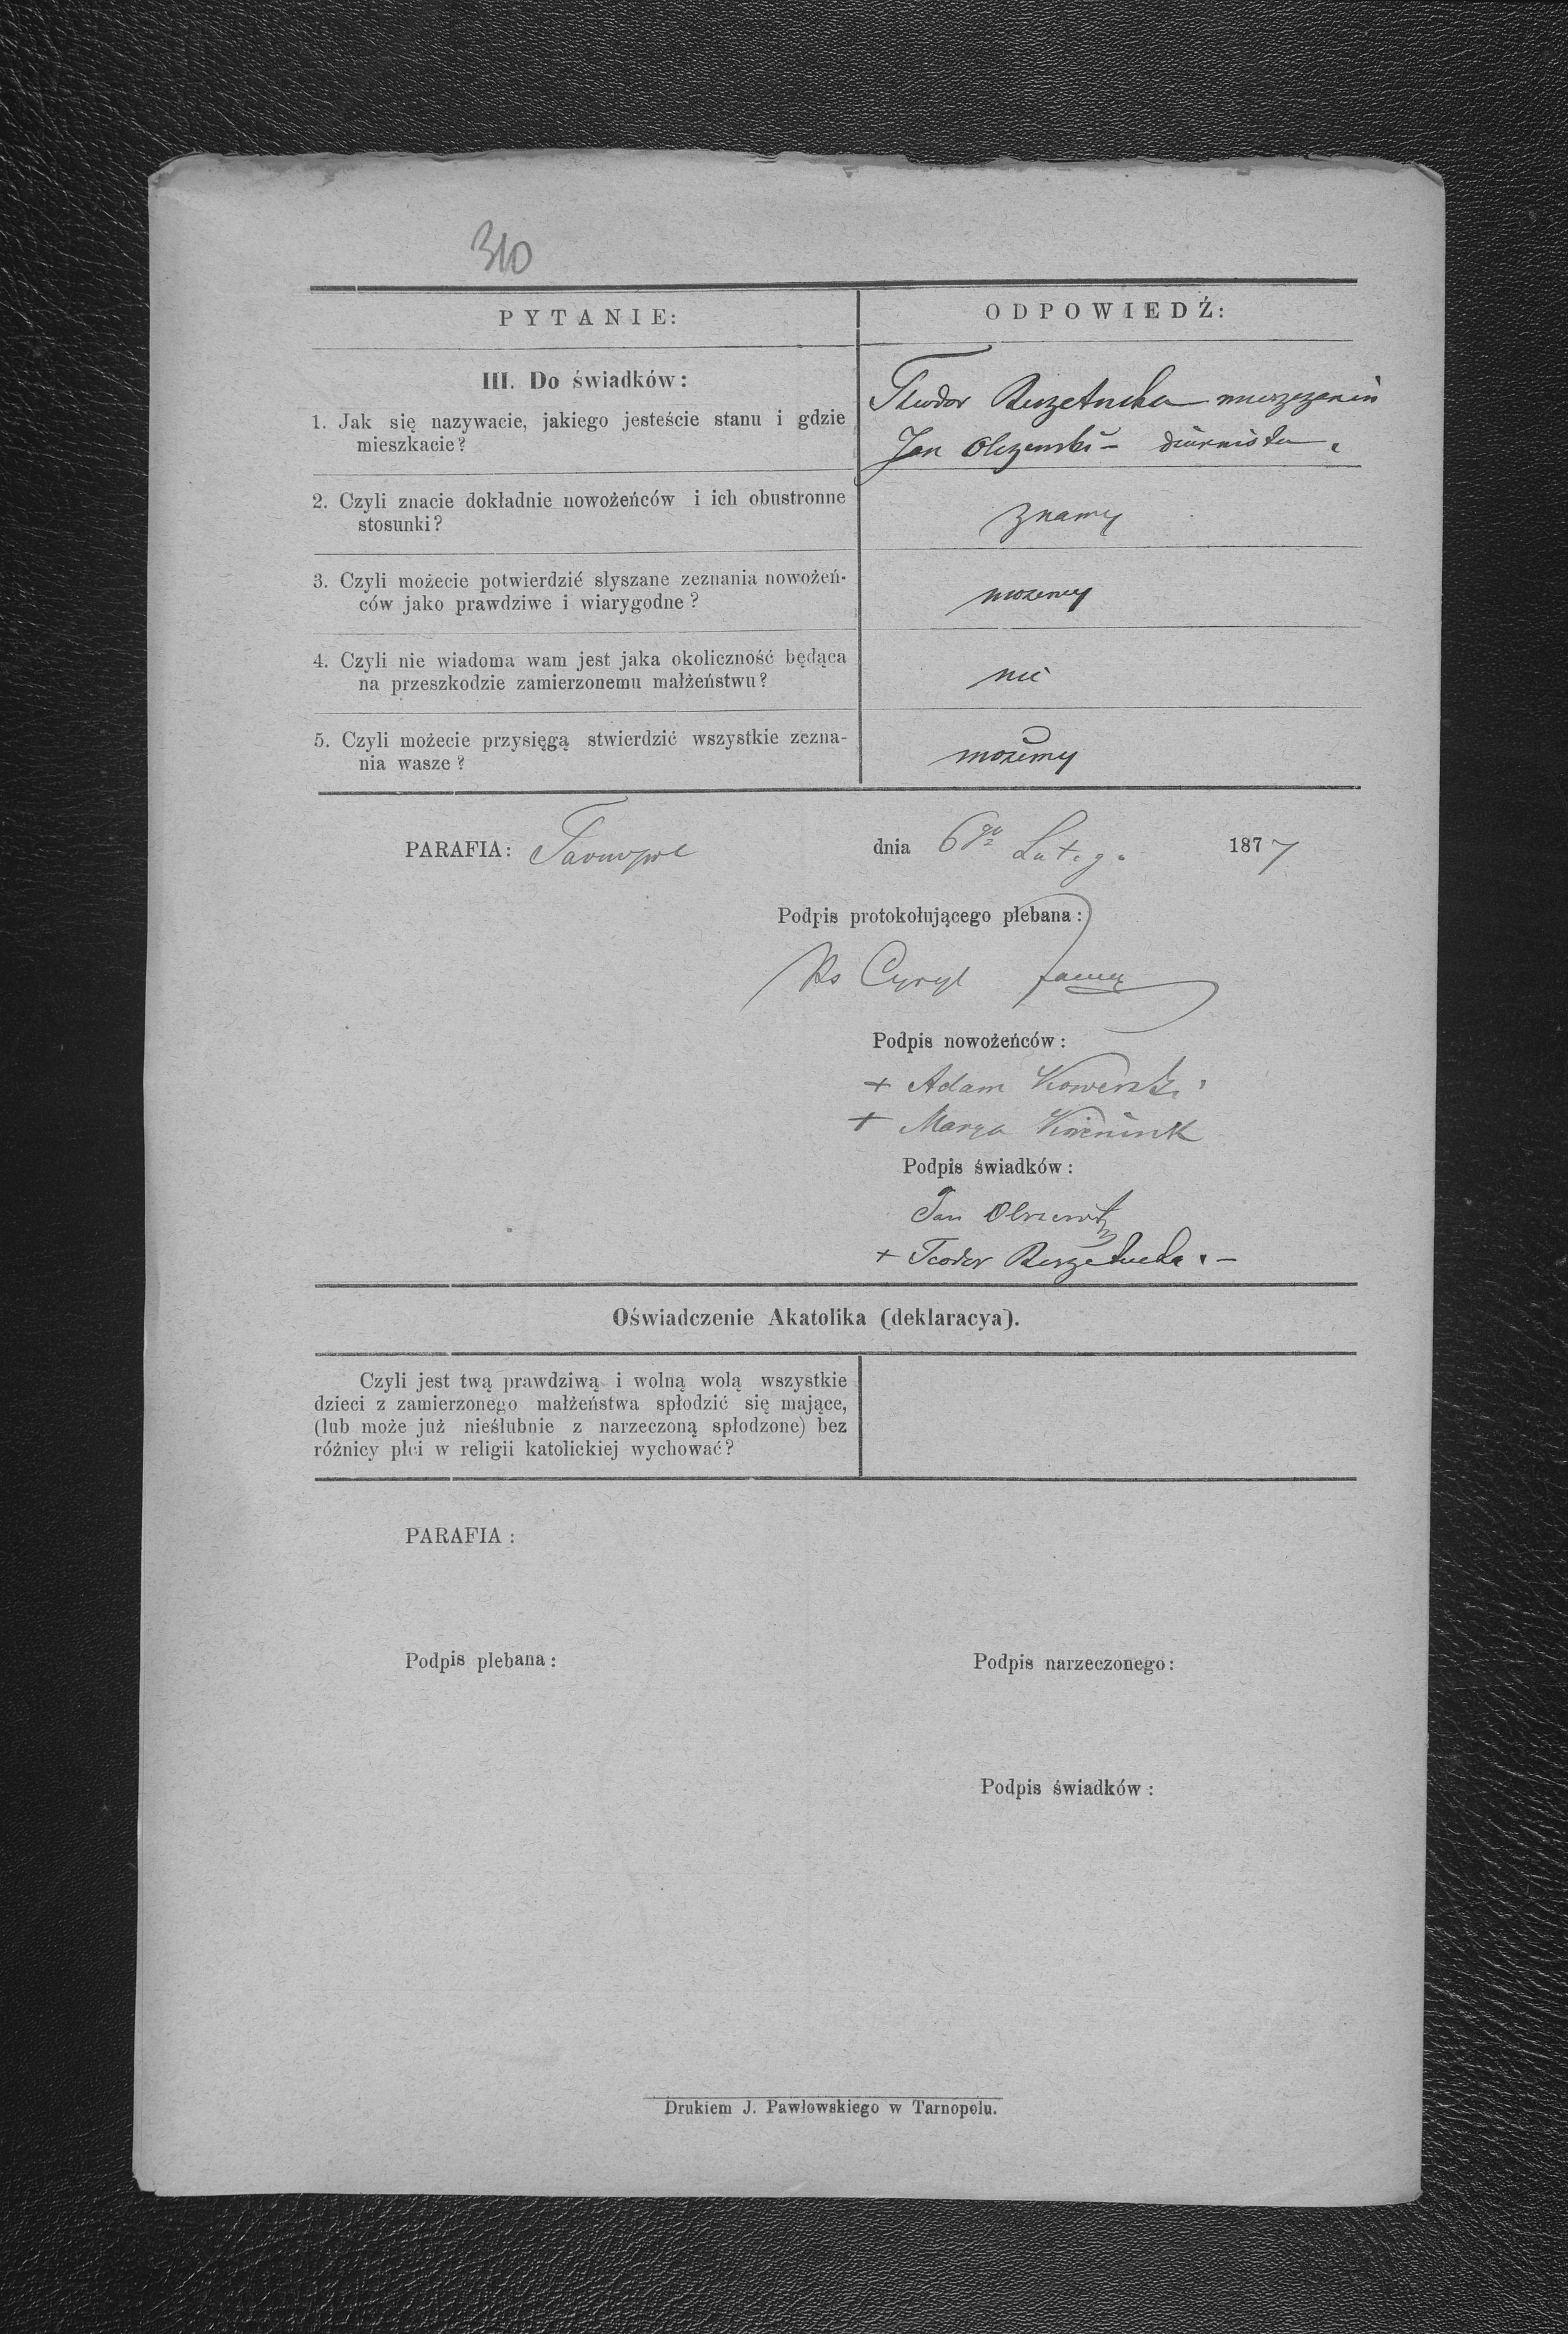 310
PYTANIE:
ODPOWIEDŹ:
III. Do świadków:
1. Jak się nazywacie, jakiego jesteście stanu i gdzie
mieszkacie?
Teodor mieszczanin
Jan Olszewski – diurnista.
2. Czyli znacie dokładnie nowożeńców i ich obustronne
stosunki?
znamy
3. Czyli możecie potwierdzić słyszane zeznania nowożeń-
ców jako prawdziwe i wiarygodne?
możemy
4. Czyli nie wiadoma wam jest jaka okoliczność będąca
na przeszkodzie zamierzonemu małżeństwu?
nie
5. Czyli możecie przysięgą stwierdzić wszystkie zezna-
nia wasze?
możemy
PARAFIA: Tarnopol dnia 6go Lutego 1877
Podpis protokołującego plebana:
Ks Cyryl
Podpis nowożeńców:
+ Adam Kowerski
+ Marya
Podpis świadków:
Jan Olszewski
+ Teodor
Oświadczenie Akatolika (deklaracya).
Czyli jest twą prawdziwą i wolną wolą wszystkie
dzieci z zamierzonego małżeństwa spłodzić się mające,
(lub może już nieślubnie z narzeczoną spłodzone) bez
różnicy płci w religii katolickiej wychować?
PARAFIA:
Podpis plebana:
Podpis narzeczonego:
Podpis świadków:
Drukiem J. Pawłowskiego w Tarnopolu.